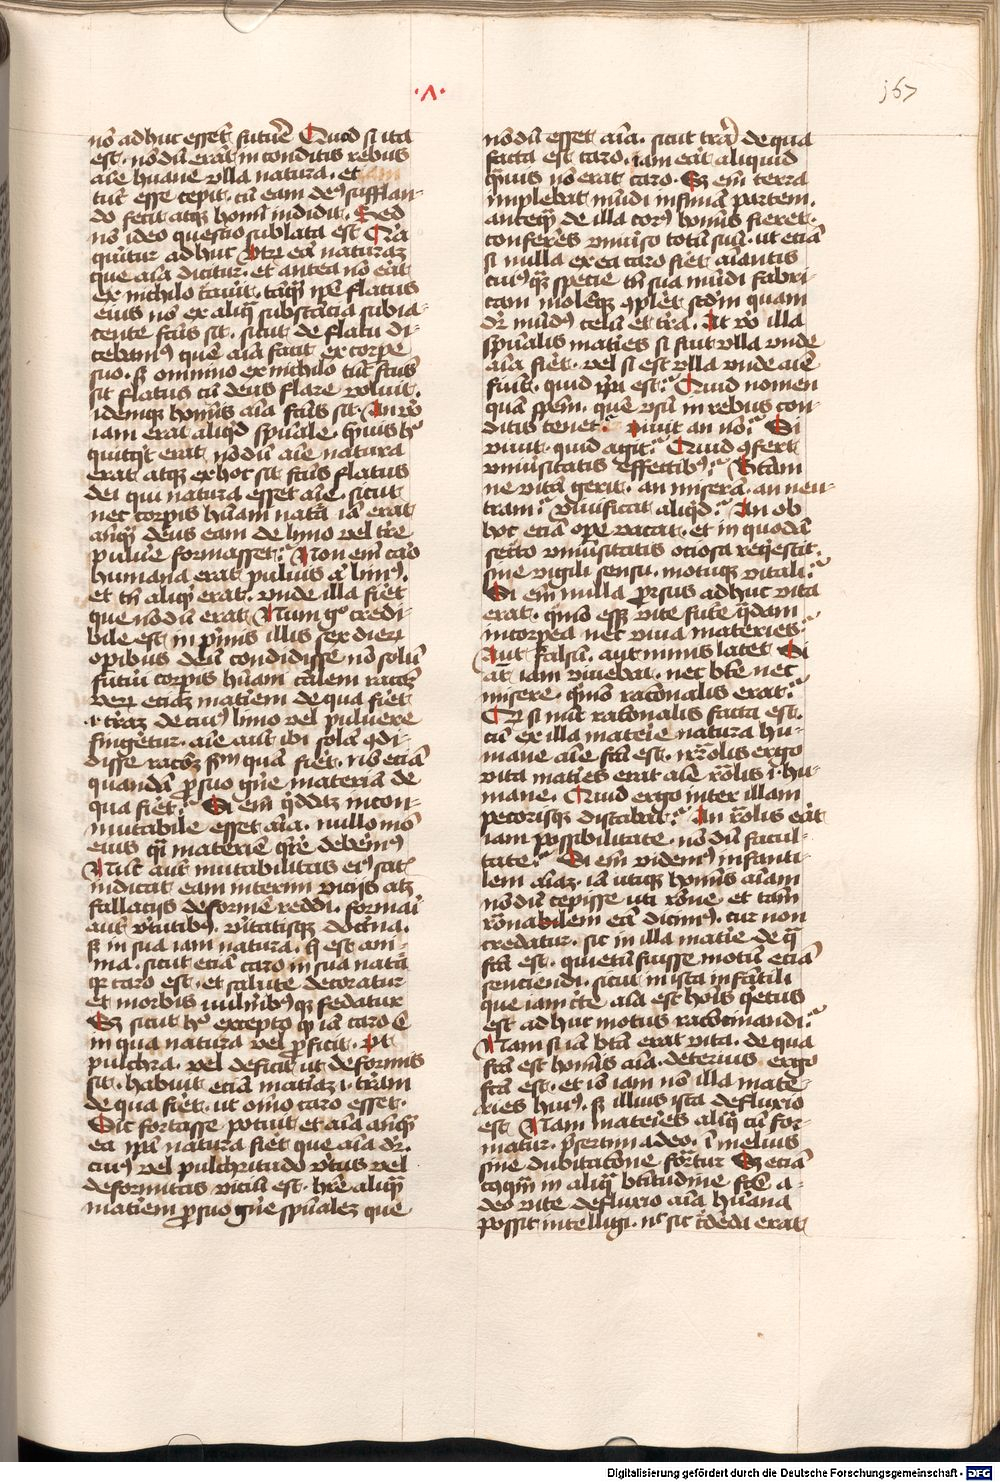 ·Λ·
167
nō adhuc esset futurū Quod si ita
est· nōdū erat in conditis rebus
aīe huāne vlla natura· et
tūc esse cepit· cū eam deꝰ sufflan-
do fecit atqꝫ homī indidit· Sed
nō ideo questio sublata est Nā
querit᷑ adhuc Vtrū eā naturaꝫ
que aīa dicitur· et antea nō erat
ex nichilo creaūit· tāqꝫ ip̄e flatus
eius nō ex aliq̄ substācia subia-
cente fcūs sit· sicut de flatu di-
cebamꝰ que aīa facit ex corpe
suo· sꝫ omnino ex nichilo tūc fcūs
sit flatus cū deus flare voluit·
idemqꝫ homīs aīa fcūs sit· An v̄o
iam erat aliqd sp̄uale· quīuis hꝰ
quitqt erat nōdū aīe natura
erat atqꝫ ex hoc sit fcūs flatus
dei qui natura esset aīe· sicut
nec corpis huām natā iā erat
anq̄ deus eam de limo vel tr̄e
puluīe formasset· Non em̄ caro
humana erat puluis aī limꝰ·
et tn̄ aliqd erat· vnde illa fieret
que nōdū erat Num gͦ credi-
bile est in p̄mis illis sex dierꝫ
opibus deū condidisse nō solū
futurū corpis huām cālem racōꝫ
verꝫ eciaꝫ matiem de qua fieret
·i· trāꝫ de cuiꝰ limo vel puluere
fingeretur· aīe aūt ibi solā qdi-
disse racōꝫ fm̄ quā fieret· nō eciā
quandā p̄ suo gn̄e materiam de
qua fieret· Si em̄ q̄ddaꝫ incon-
mutabile esset aīa· nullo mō
eius q̄si materie qrere deberemꝰ
Nūc aūt mutabilitas eiꝰ sat
indicat eam interim vicijs atqꝫ
fallacijs deformē reddi· formari
aūt v̄tutibꝰ· v̄itatisqꝫ doctrīa·
sꝫ in sua iam natura· q̄ est ani-
ma· sicut eciā caro in sua natā
q̄ caro est· et salute decoratur
et morbis vulnibꝰqꝫ fedatur
Sꝫ sicut hꝰ excepto qꝫ iā caro ē
in qua natura vel p̄ficit· vt
pulchra· vel deficit ut deformis
sit· habuit eciā matiaꝫ ·i· trām
de qua fieret· ut omīo caro esset·
Sic fortasse potuit et aīa anq̄ꝫ
ea ip̄a natura fieret que aīa dr̄·
cuiꝰ vel pulchritudo v̄tus vel
deformitas viciū est· hr̄e aliq̄ꝫ
matiem p̄ suo gn̄e sp̄ualeꝫ que
nōdū esset aīa· sicut trā de qua
facta est caro· iam erat aliquid
quīuis nō erat caro· Sꝫ em̄ terra
implebat mūdi infimā partem·
antequā de illa corꝰ homīs fieret·
conferēs vniūso totū suū· ut eciā
si nulla ex ea caro fieret aīantis
cuiꝰqꝫ specie tn̄ sua mūdi fabri-
cam molēqꝫ qpleret scd̄m quam
dr̄ mūdꝰ celū et tr̄a· At v̄o illa
sp̄ualis maties si fuit vlla vnde
aīa fieret· vel si est vlla vnde aīe
fiunt· quid ip̄a est· Quid nomen
quā spēm· quē vsū in rebus con-
ditis tenet· viuit an nō· Si
viuit· quid agit· Quid qfert
vniūsitatis effectibꝰ· Btām
ne vitā gerit· an miserā· an neu-
tram· viuificat aliqd· An ob
hoc eciā ope vacat· et in quodā
secreto vniūsitatis ociosa reqescit·
sine vigili sensu· motuqꝫ vitali·
Si em̄ nulla prorsus adhuc vita
erat· qmō esset vite future qdam
incorpea nec viua materies·
Aut falsū· aut nimis latet Si
aūt iam viuebat· nec bte nec
misere· qmō racōnalis erat·
Qꝫ si tūc racōnalis facta est·
cū ex illa matie natura hu-
mane aīe fcā est· irrōlis ergo
vita maties erat aīe rōlis ·i· hu-
mane· Quid ergo inter illam
pecorisqꝫ distabat· An rōlis erat
iam possibilitate· nō dū facul-
tate· Si em̄ videmꝰ infanti-
lem aīaꝫ· iā utiqꝫ homīs aīam
nōdū cepisse uti rōne et tam̄
rōnabilem eā dicimꝰ· cur non
credatur· sic in illa matie de q̄
fcā est· quietū fuisse motū eciā
senciendi· sicut in ista infātili
que iam c̄te aīa est hōis qetus
est adhuc motus racōcinandi·
Nam si iā bta erat vita· de qua
fcā est homīs aīa· deterius ergo
fcā est· et iō iam nō illa mate-
ries huiꝰ· sꝫ illius ista defluxio
est Nam materies aliq̄ cū for-
matur· p̄sertim a deo· ī melius
sine dubitatōne formatur Sꝫ eciā
quīqꝫ in aliq̄ btitudine fcē a-
deo vite defluxio aīa huāna
possit intelligi· nꝰ sic c̄dēda erat